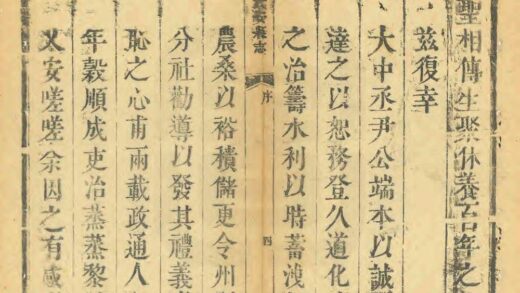 聖相傳生聚休養百年之
茲復幸
大中丞尹公端本以誠
達之以恕務登久道化
之治籌水利以時蓄洩
安縣志 序 四
農桑以裕積儲更令州
分社勸導以發其禮義
恥之心甫兩載政通人
年穀順成吏治蒸蒸黎
乂安嗟嗟余因之有感